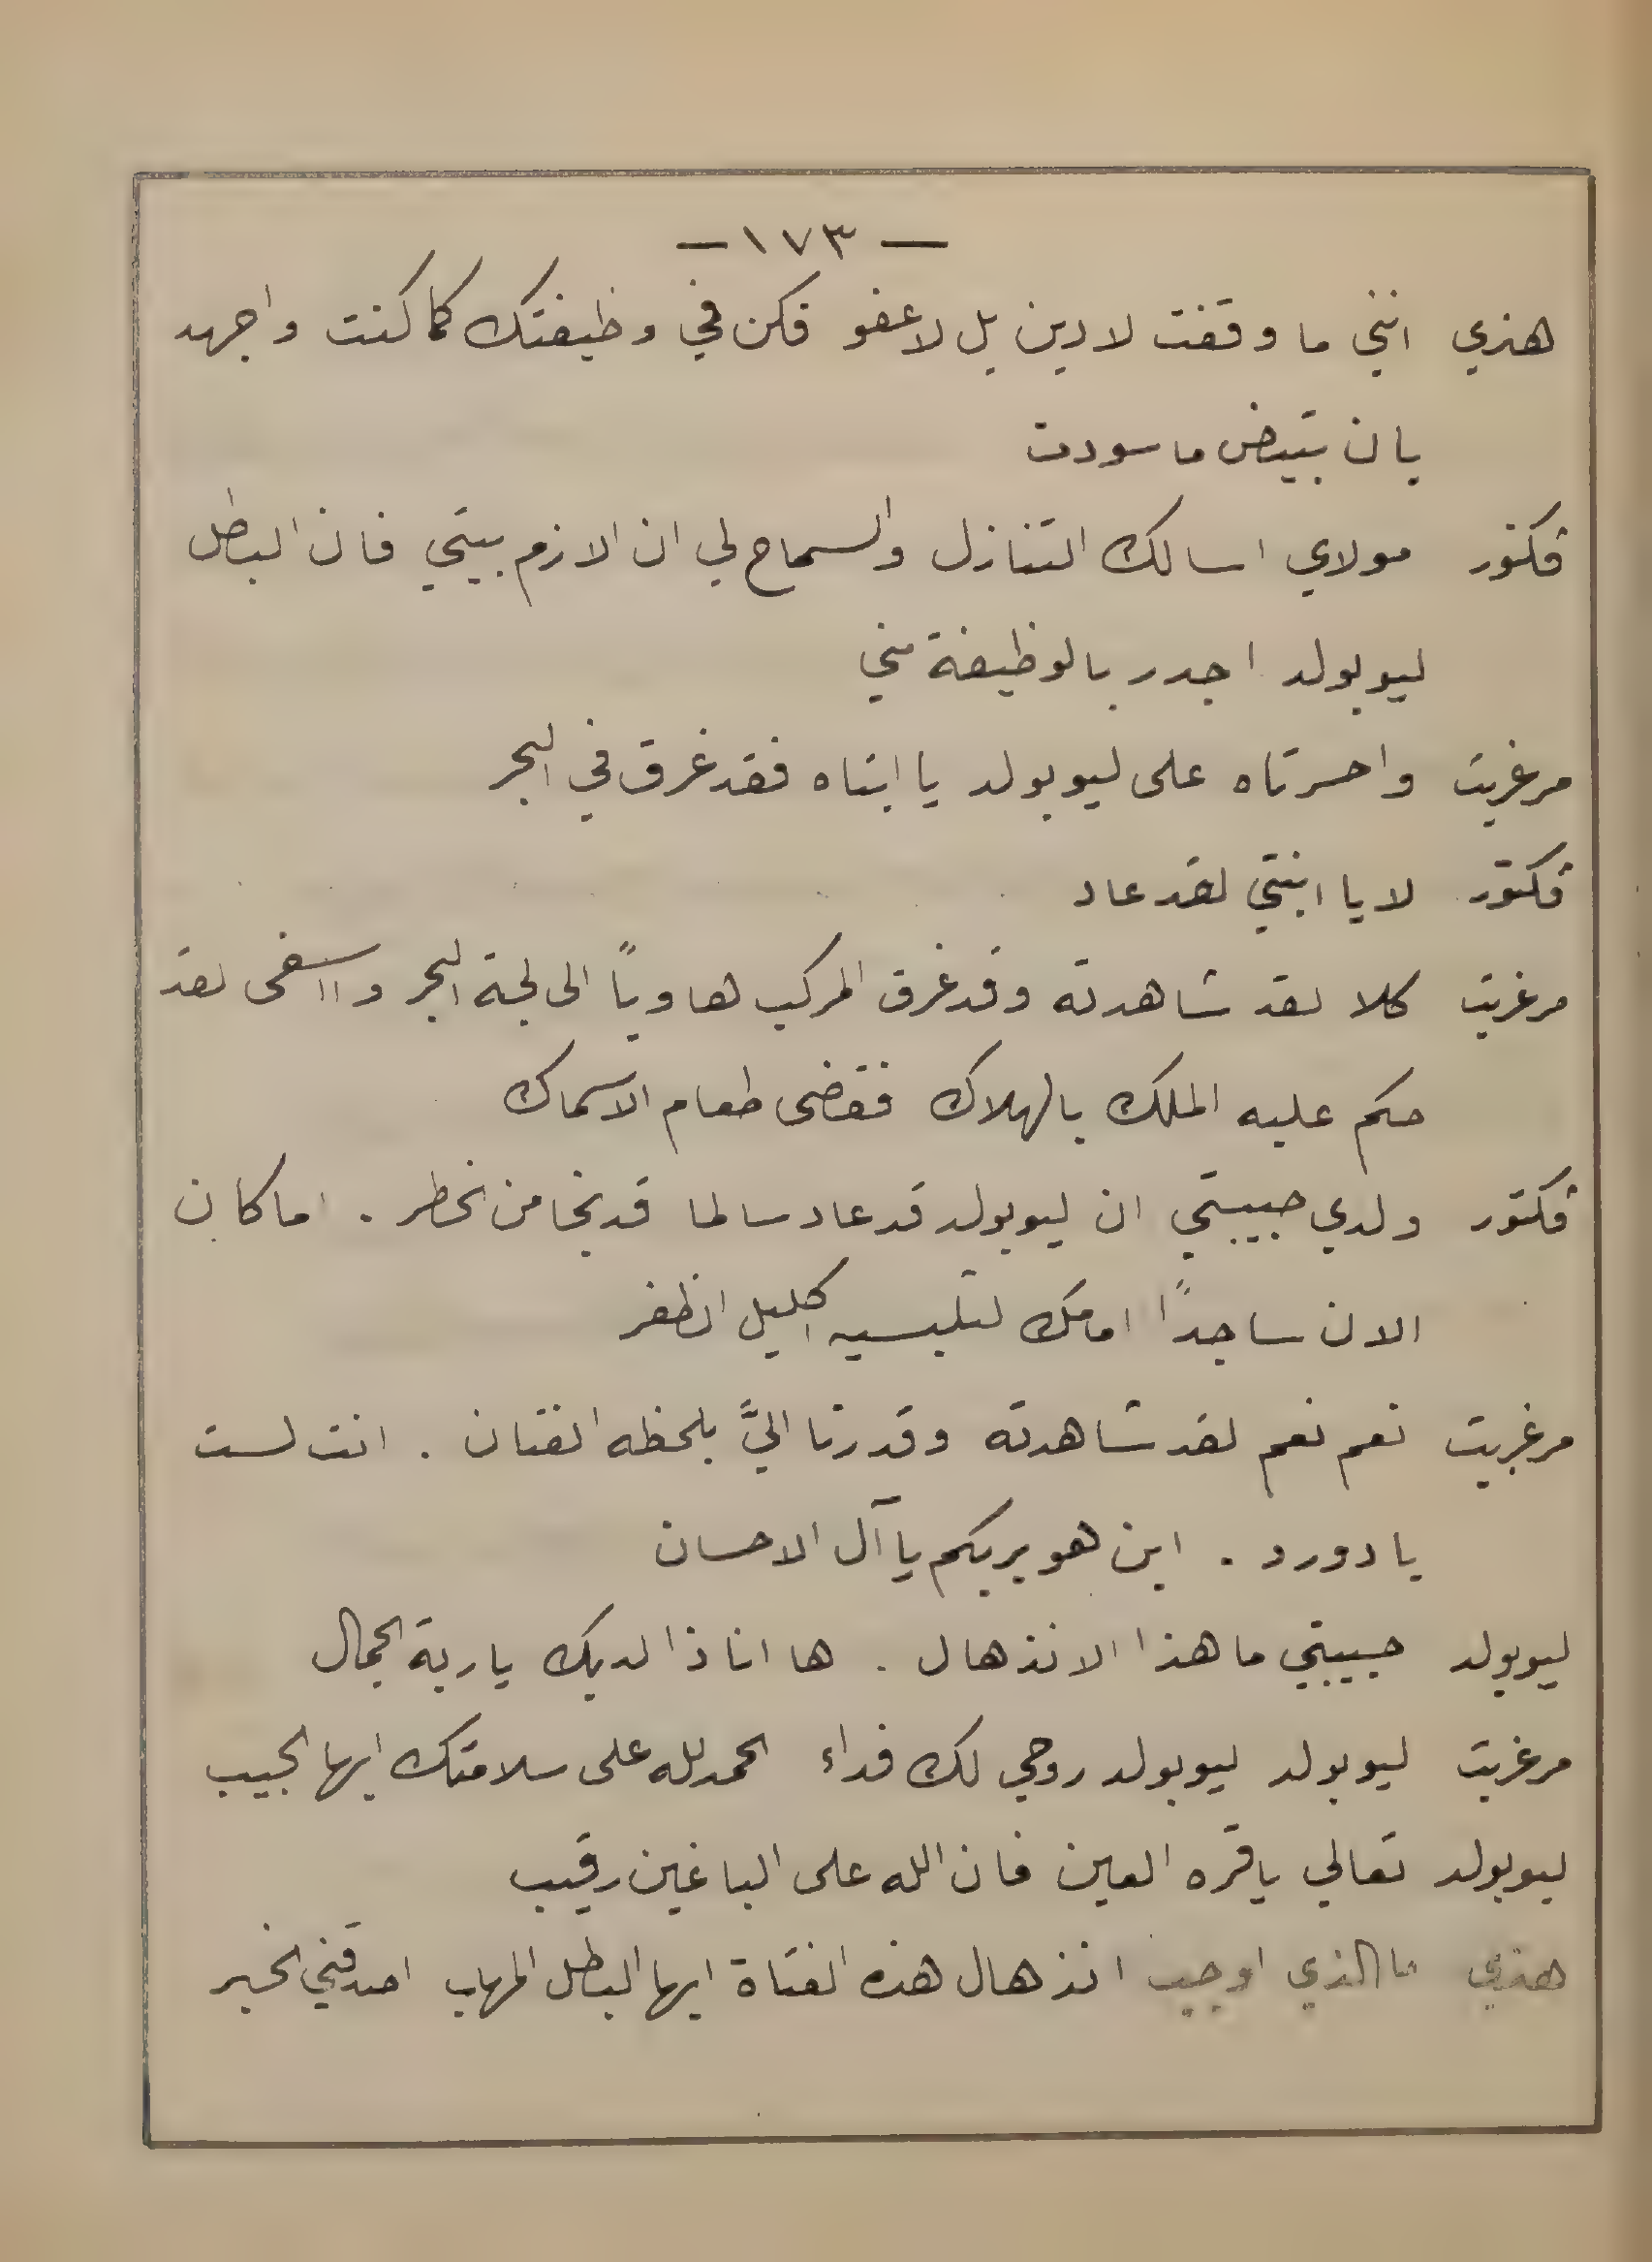 — ١٧٣ —
هنري انني ما وقفت لادين بل لاعفو فكن في وظيفتك كما كنت واجهد
بان تبيض ما سودت
فكتور مولاي اسالك التنازل والسماح لي ان الازم بيتي فان البطل
ليوبولد اجدر بالوظيفة مني
مرغريت واحسرتاه على ليوبولد يا ابتاه فقد غرق في البحر
فكتور لا يا ابنتي لقد عاد
مرغريت كلا لقد شاهدته وقد غرق المركب هاوياً الى لجة البحر وااسفى لقد
حكم عليه الملك بالهلاك فقضى طعام الاسماك
فكتور ولدي حبيبتي ان ليوبولد قد عاد سالما قد نجا من الخطر . اما كان
الان ساجداً امامك لتلبسيه اكليل الظفر
مرغريت نعم نعم لقد شاهدته وقد رنا اليَّ بلحظه الفتان . انت لست
يا دورد . اين هو بربكم يا آل الاحسان
ليوبولد حبيبتي ما هذا الانذهال . ها انا ذا لديك يا ربة الجمال
مرغريت ليوبولد ليوبولد روحي لك فداء الحمد لله على سلامتك ايها الحبيب
ليوبولد تعالي يا قره العين فان الله على الباغين رقيب
هنري ما الذي اوجب انذهال هذه الفتاة ايها البطل المهاب اصدقني الخبر